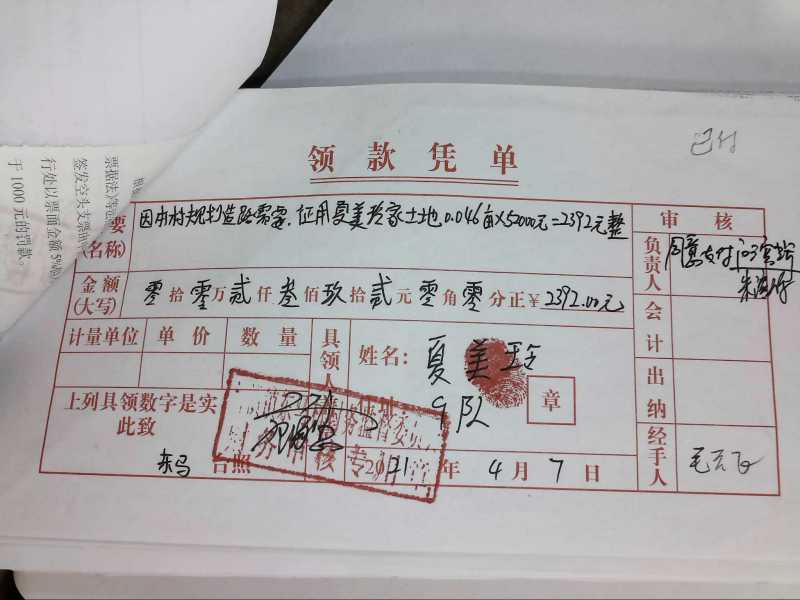 已付
领款凭单
票据法)
签发空头支票
行处以票面金额5%
于1000元的罚款。
要
(名称)
因本村规划造路需要,征用夏美玲家土地0.046亩×52000元=2392元整
审核
负责人
同意支付
金额
(大写)
零拾零万贰仟叁佰玖拾贰元零角零分正¥2392.00元
会计
计量单位 单价 数量
具领人
姓名:夏美玲
章
9队
出纳
上列具领数字是实
此致
东马 台照
2021年4月7日
经手人